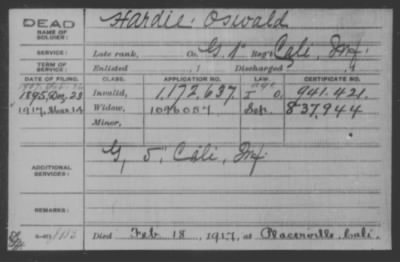 DEAD
NAME OF SOLDIER: Hardie Oswald
SERVICE: Late rank, Co. G, 1" Reg't Cali, Inf.
TERM OF SERVICE: Enlisted , 1 Discharged , 1
DATE OF FILING. CLASS. APPLICATION NO. LAW. CERTIFICATE NO.
1895, Dec, 23 Invalid, 1,172,637 941.421.
1917, Mar. 14 Widow, 1096057 837,944
Minor,
ADDITIONAL SERVICES: G, 5" Cali, Inf.
REMARKS:
Died Feb 18, 1917, at Placerville, Cali.